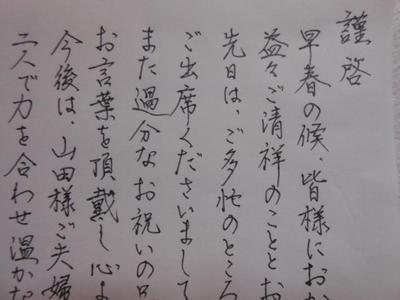 謹啓
早春の候、皆様におか
益々ご清祥のこととお
先日は、ご多忙のところ
ご出席くださいまして
また過分なお祝いの品
お言葉を頂戴し心ま
今後は、山田様ご夫婦
二人で力を合わせ温かな